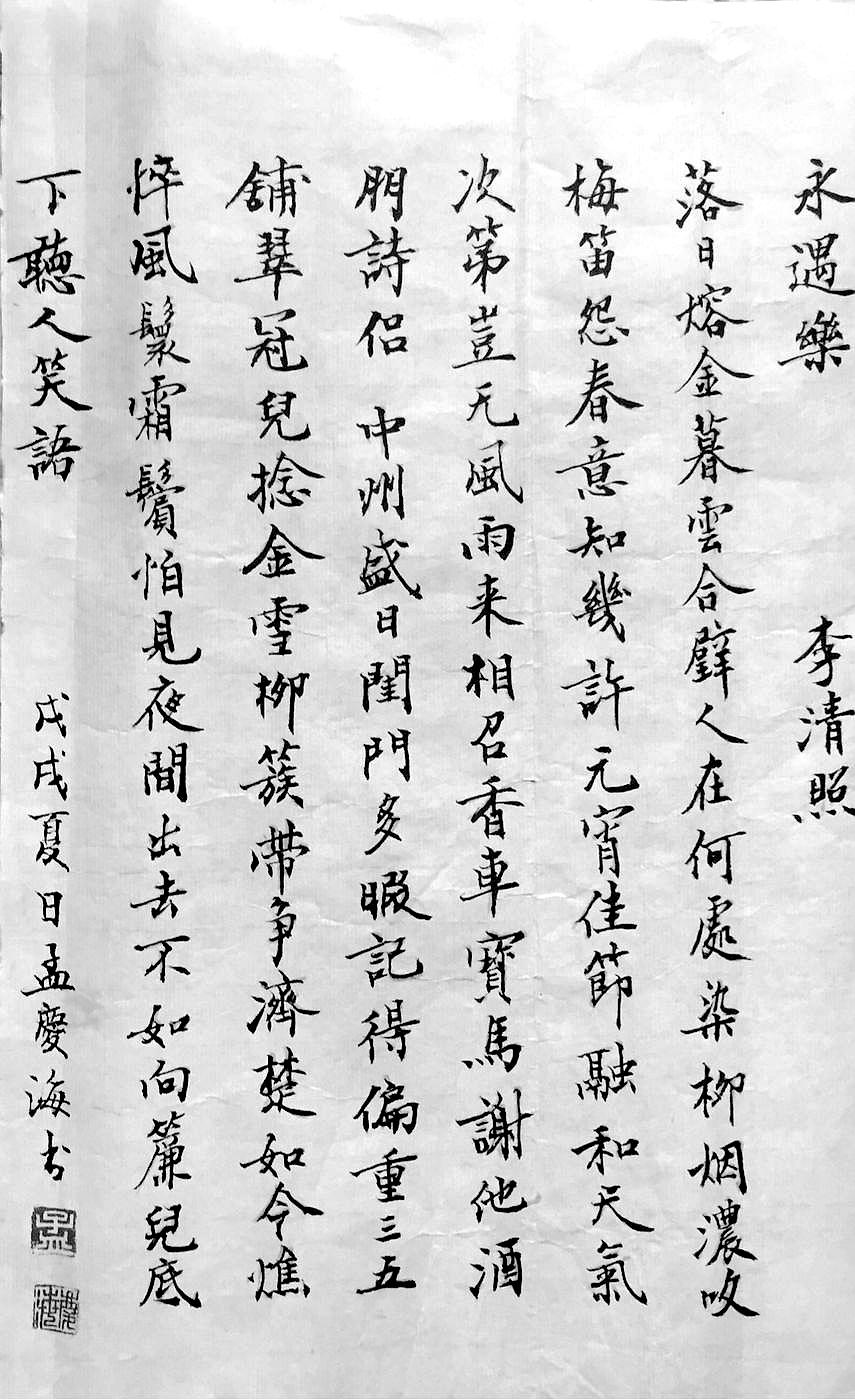 永遇樂 李清照
落日熔金暮雲合璧人在何處染柳烟濃吹
梅笛怨春意知幾許元宵佳節融和天氣
次第豈无風雨来相召香車寳馬謝他酒
朋詩侣 中州盛日閨門多暇記得偏重三五
舖翠冠兒捻金雪柳簇帶争濟楚如今憔
悴風鬟霜鬢怕見夜間出去不如向簾兒底
下聽人笑語 戊戌夏日孟慶海书
孟
慶海